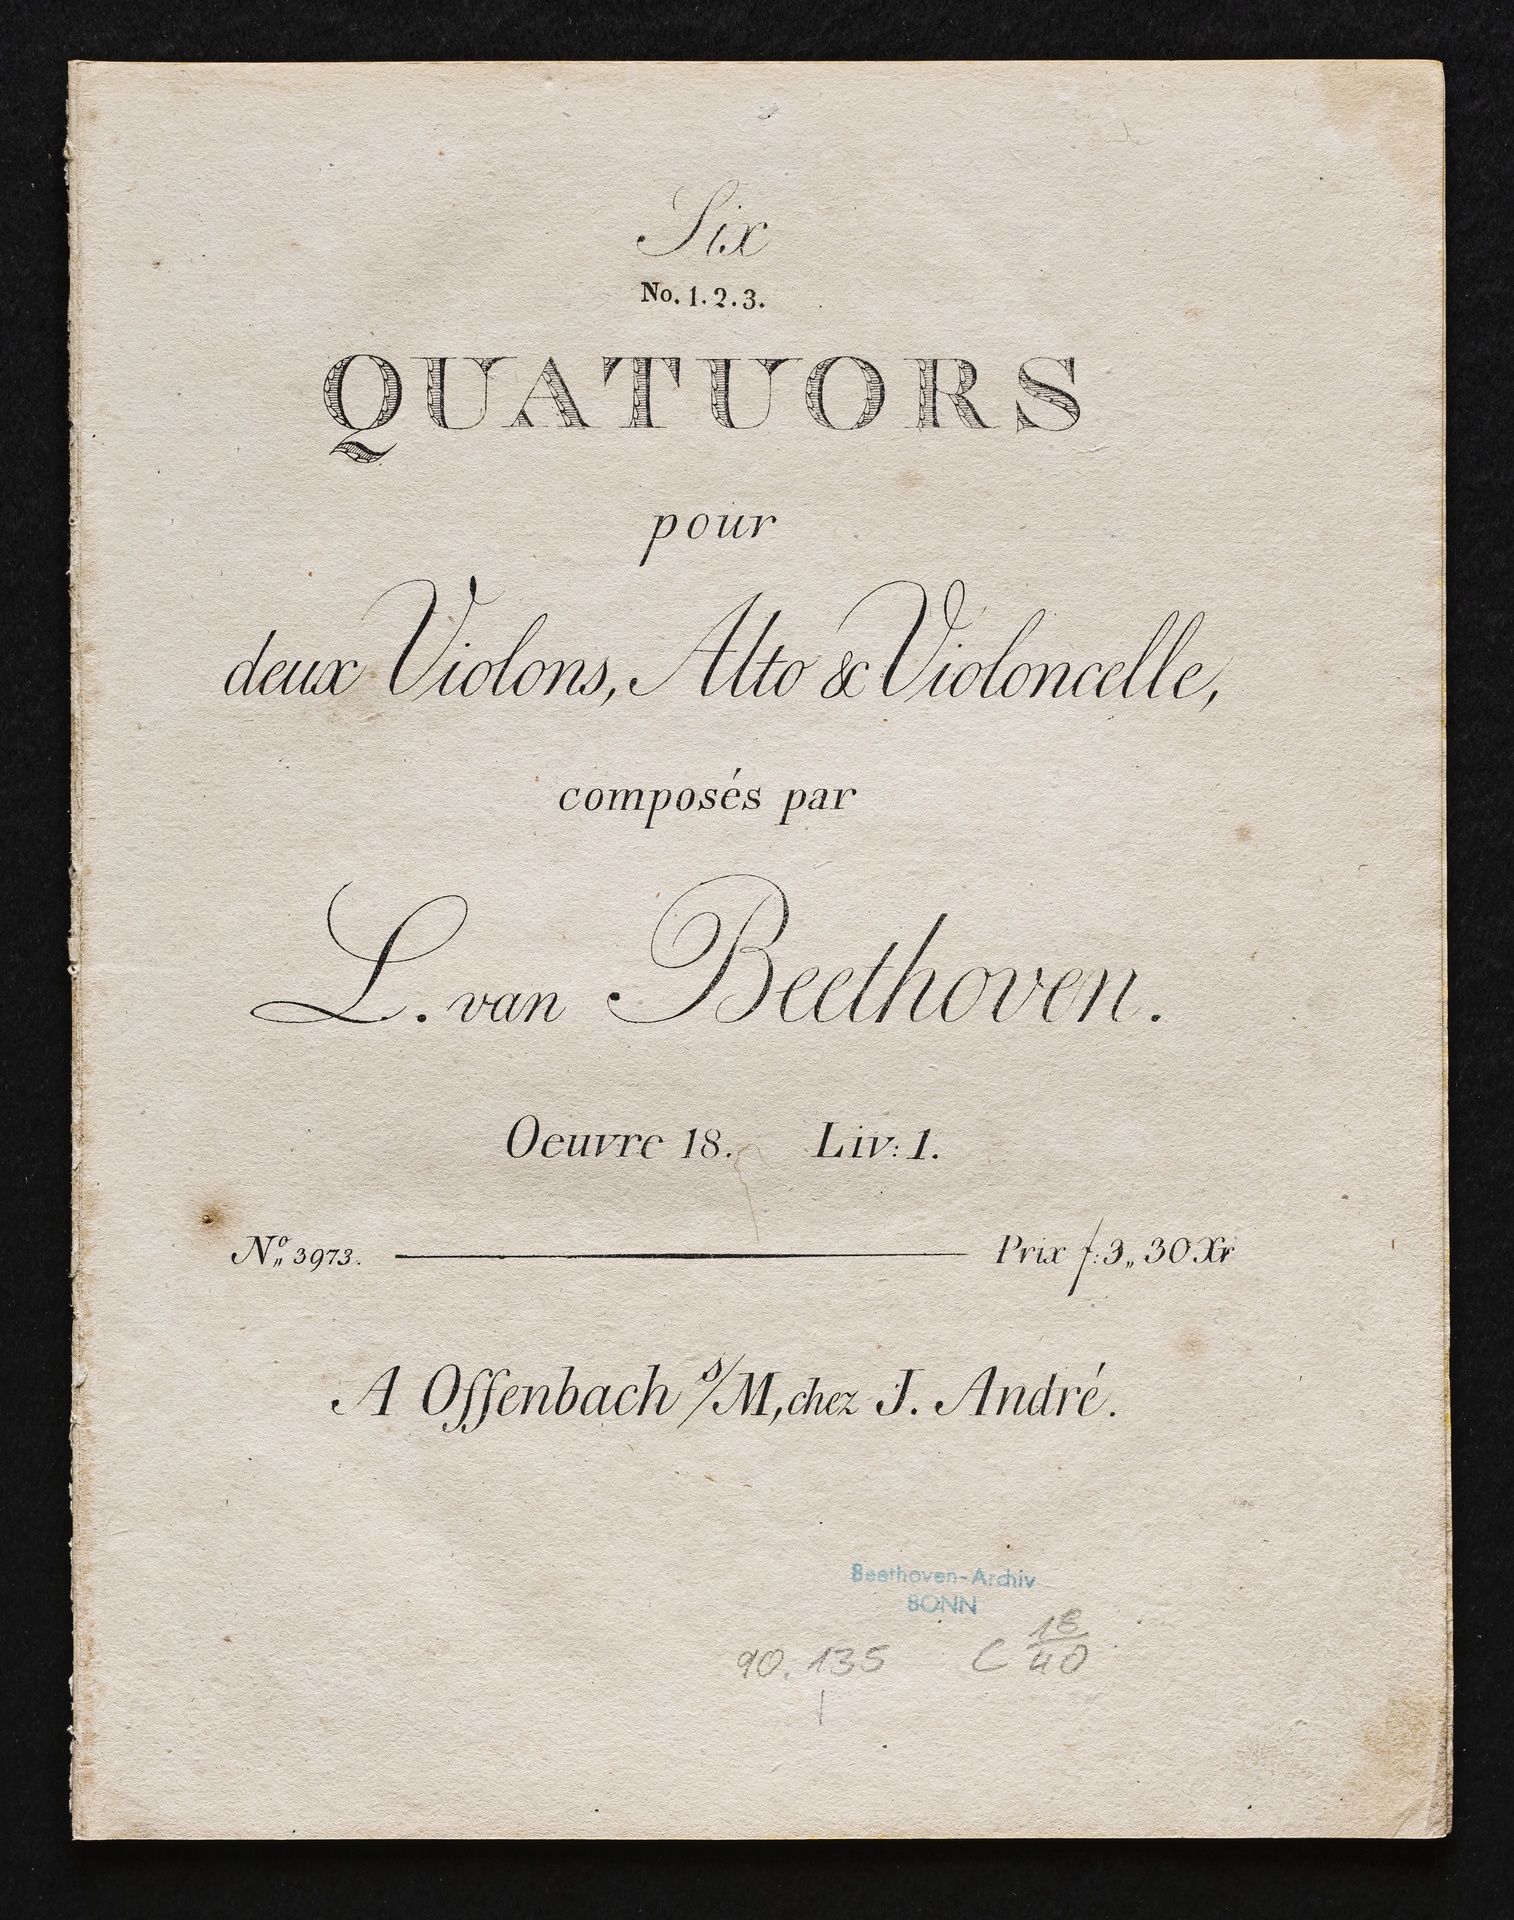 Six
No. 1. 2. 3.
QUATUORS
pour
deux Violons, Alto & Violoncelle,
composés par
L. van Beethoven.
Oeuvre 18. Liv: 1.
No„ 3973. Prix f: 3„ 30 Xr
A Offenbach s/M, chez J. André.
Beethoven-Archiv
BONN
90, 135 C 18/40